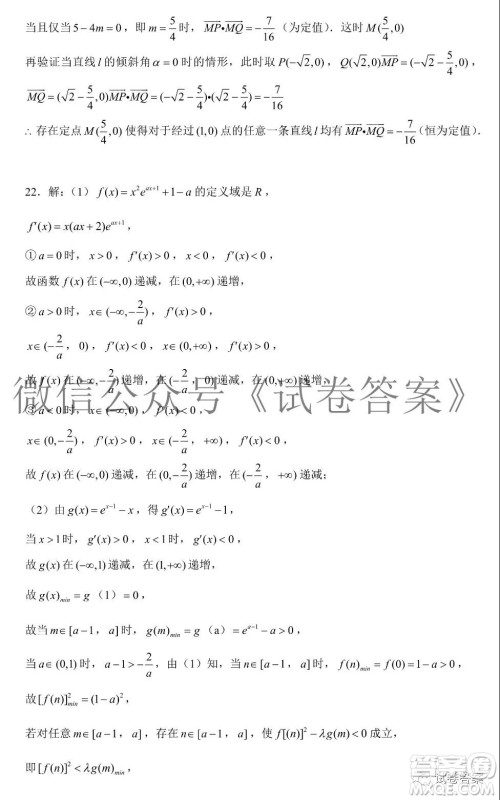 当且仅当5-4m=0，即m=5/4时，MP•MQ=-7/16（为定值）．这时M(5/4,0)
再验证当直线l的倾斜角α=0时的情形，此时取P(-√2,0)，Q(√2,0)MP=(-√2-5/4,0)，
MQ=(√2-5/4,0)MP•MQ=(-√2-5/4)•(√2-5/4)=-7/16
∴存在定点M(5/4,0)使得对于经过(1,0)点的任意一条直线l均有MP•MQ=-7/16（恒为定值）．
22．解：（1）f(x)=x²e^{ax+1}+1-a的定义域是R，
f′(x)=x(ax+2)e^{ax+1}，
①a=0时，x>0，f′(x)>0，x<0，f′(x)<0，
故函数f(x)在(-∞,0)递减，在(0,+∞)递增，
②a>0时，x∈(-∞,-2/a)，f′(x)>0，
x∈(-2/a，0)，f′(x)<0，x∈(0,+∞)，f′(x)>0，
故f(x)在(-∞,-2/a)递增，在(-2/a，0)递减，在(0,+∞)递增，
微信公众号《试卷答案》
③a<0时，x∈(-∞,0)，f′(x)<0，
x∈(0,-2/a)，f′(x)>0，x∈(-2/a，+∞)，f′(x)<0，
故f(x)在(-∞,0)递减，在(0,-2/a)递增，在(-2/a，+∞)递减；
（2）由g(x)=e^{x-1}-x，得g′(x)=e^{x-1}-1，
当x>1时，g′(x)>0，x<1时，g′(x)<0，
故g(x)在(-∞,1)递减，在(1,+∞)递增，
故g(x)min=g（1）=0，
故当m∈[a-1，a]时，g(m)min=g（a）=e^{a-1}-a>0，
当a∈(0,1)时，a-1>-2/a，由（1）知，当n∈[a-1，a]时，f(n)min=f(0)=1-a>0，
故[f(n)]²min=(1-a)²，
若对任意m∈[a-1，a]，存在n∈[a-1，a]，使f[(n)]-λg(m)<0成立，
即[f(n)]²<λg(m)min，
试卷答案
答案圈
MXQE.COM